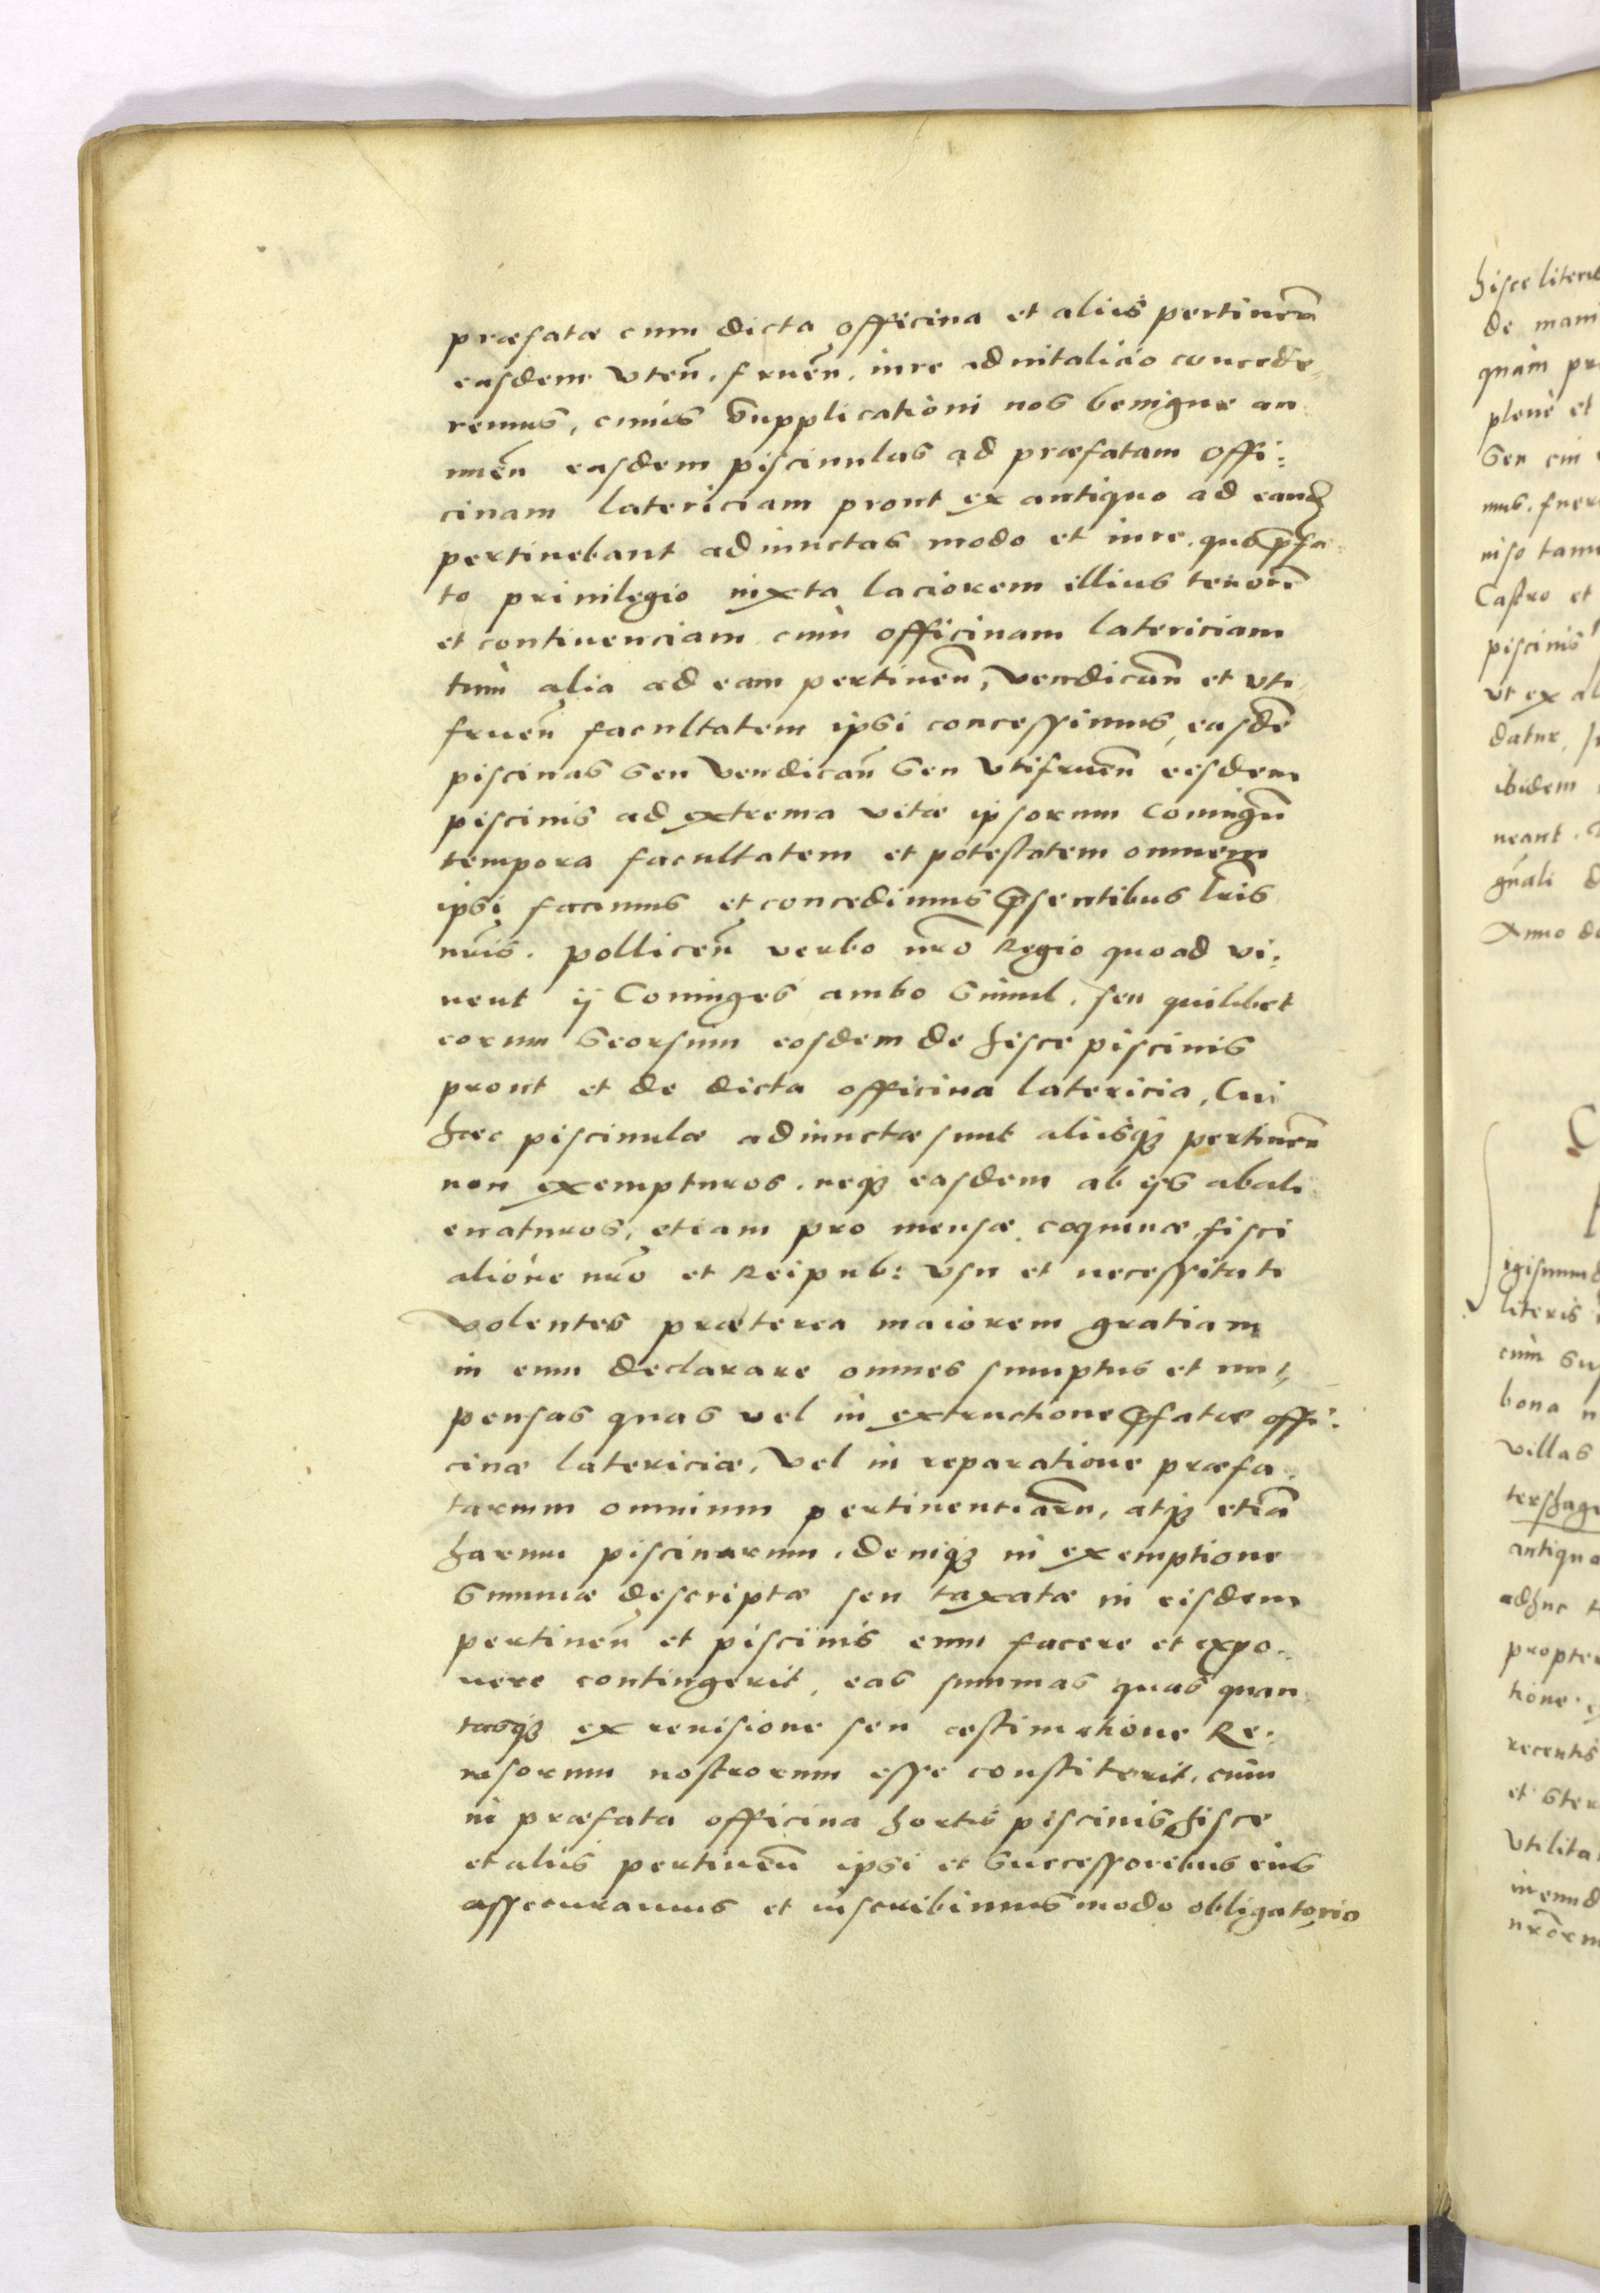 præfatæ cum dicta officina et aliis pertineñ
easdem vteñ. frueñ. iure aduitalicio concede„
remus, cuius supplicationi nos benigne an„
nueñ easdem piscinulas ad præfatam offi:
cinam latericiam prout ex antiquo ad eand
pertinebant adiunctas modo et iure. quo p̃fa„
to priuilegio iuxta laciorem illius tenorẽ
et continenciam cum officinam latericiam
tum alia ad eam pertineñ, vendicañ et vti„
frueñ facultatem ipsi concessimus, easdẽ
piscinas seu vendicañ seu vtifrueñ eisdem
piscinis ad extrema vitæ ipsorum Coniugũ
tempora facultatem et potestatem omnem
ipsi facimus et concedimus p̃sentibus lr̃is
nr̃is. pollicen̄ verbo nr̃o Regio quoad vi:
uent ij Coniuges ambo simul. seu quilibet
eorum seorsim eosdem de hisce piscinis
prout et de dicta officina latericia, Cui
hæc piscinulæ adiunctæ sunt aliisq3 pertineñ
non exempturos. neq3 easdem ab ijs abali„
enaturos, etiam pro mensæ coquinæ, fisci
alione nr̃o et Reipub: vsu et necessitate
Volentes præterea maiorem gratiam
in eum declarare omnes sumptus et im„
pensas quas vel in extructione p̃fatæ offi:
cinæ latericiæ, Vel in reparatione præfa„
tarum omnium pertinentiarũ, atq3 etiã
harum piscinarum. deniq3 in exemptione
summæ descriptæ seu taxatæ in eisdem
pertineñ et piscinis eum facere et expo„
nere contingerit, eas summas quas quan„
tasq3 ex reuisione seu æstimatione Re„
uisorum nostrorum esse constiterit. cum
in præfata officina hortis piscinis hisce
et aliis pertineñ ipsi et successoribus eius
assecuramus et inscribimus modo obligatorio
hisce literis
quàm
plenè et
seu
Castro et
piscinis
vt ex
datur,
ibidem
neant.
gñali
Anno
literis
cùm
bona
villas
antiqua
adhuc
recentis
et